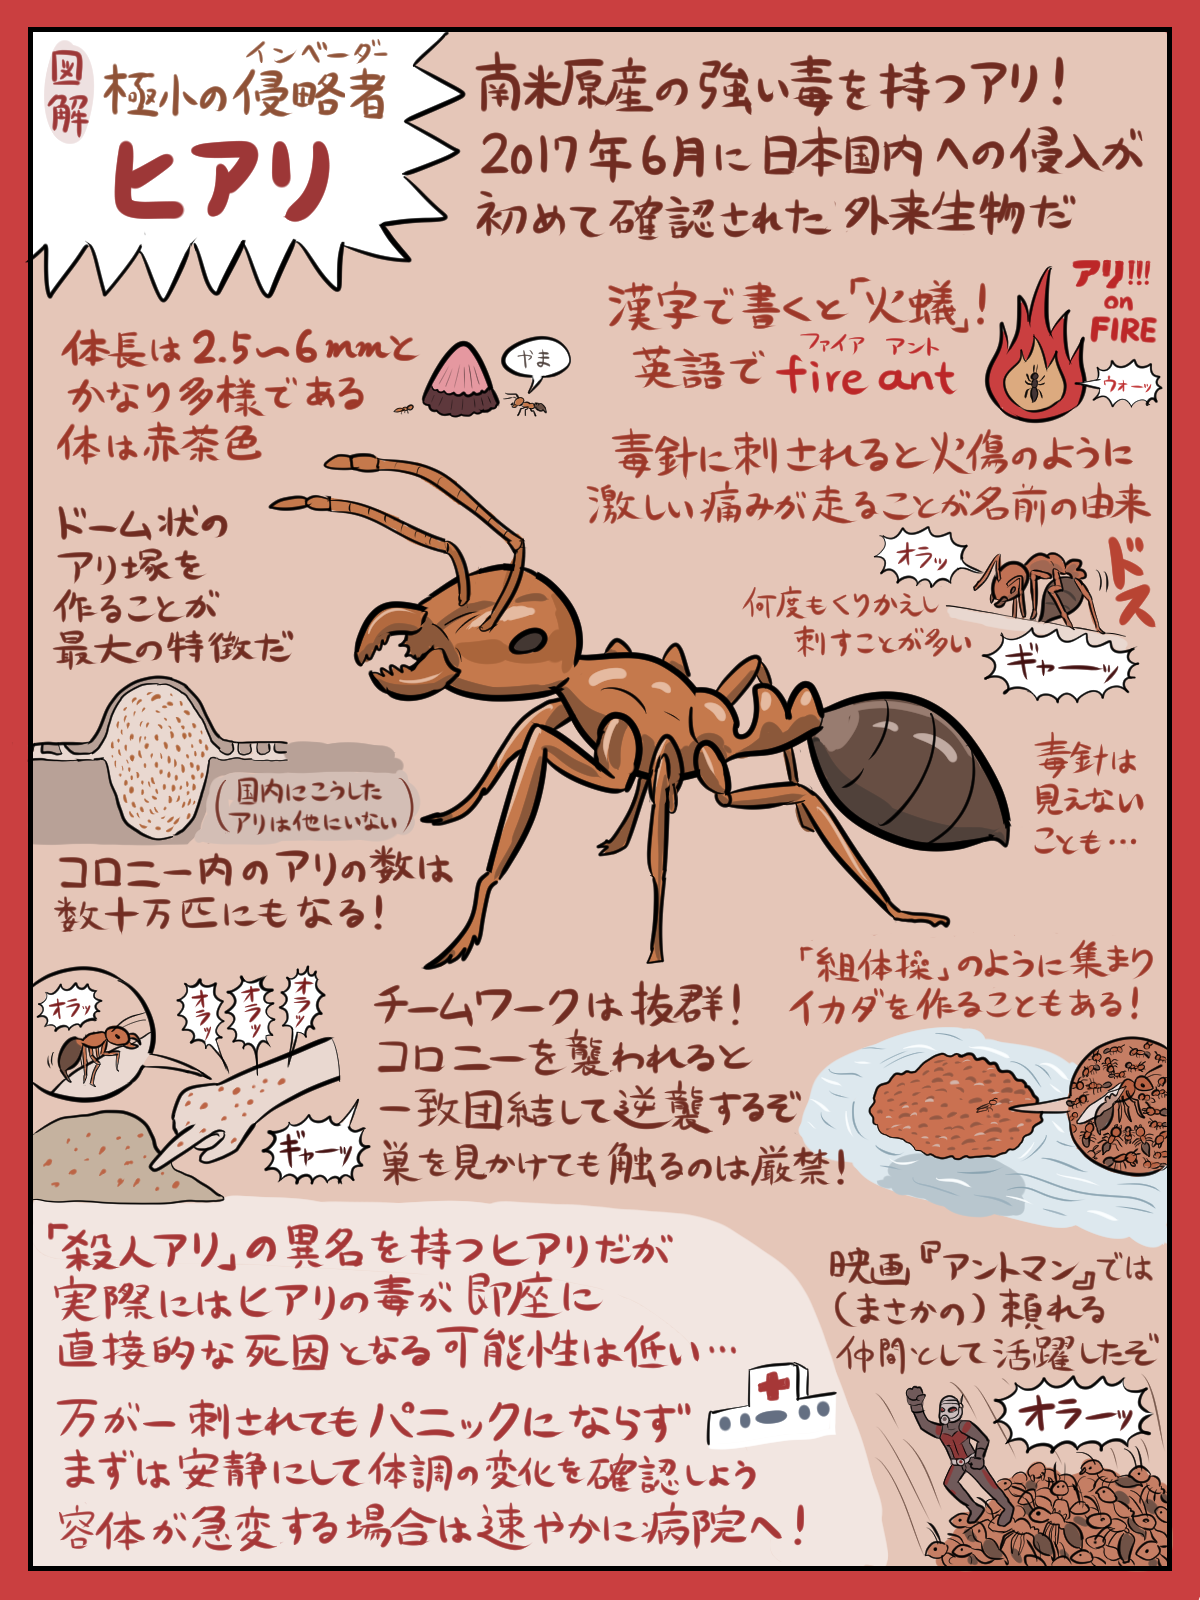 図解
インベーダー
極小の侵略者
ヒアリ
南米原産の強い毒を持つアリ!
2017年6月に日本国内への侵入が
初めて確認された外来生物だ
漢字で書くと「火蟻」!
ファイア アント
英語で fire ant
アリ!!!
on
FIRE
ウォーッ
体長は2.5〜6mmと
かなり多様である
体は赤茶色
やま
毒針に刺されると火傷のように
激しい痛みが走ることが名前の由来
オラッ
ドス
何度もくりかえし
刺すことが多い
ギャーッ
ドーム状の
アリ塚を
作ることが
最大の特徴だ
(国内にこうした
アリは他にいない)
毒針は
見えない
ことも…
コロニー内のアリの数は
数十万匹にもなる!
「組体操」のように集まり
イカダを作ることもある!
オラッ
オラッ
オラッ
オラッ
ギャーッ
チームワークは抜群!
コロニーを襲われると
一致団結して逆襲するぞ
巣を見かけても触るのは厳禁!
「殺人アリ」の異名を持つヒアリだが
実際にはヒアリの毒が即座に
直接的な死因となる可能性は低い…
万が一刺されてもパニックにならず
まずは安静にして体調の変化を確認しよう
容体が急変する場合は速やかに病院へ!
映画『アントマン』では
(まさかの)頼れる
仲間として活躍したぞ
オラーッ